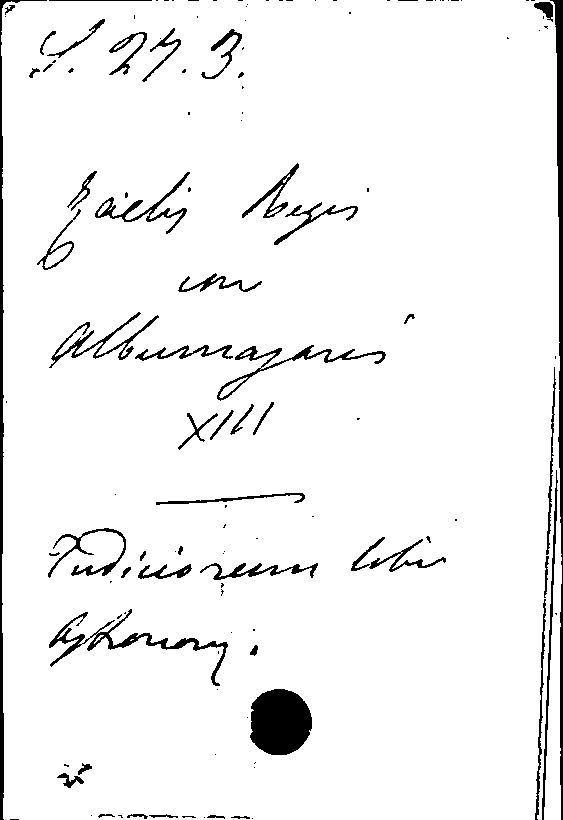 S. 27. 3.
Zaelis Regis
cum
Albumazaris
XIII
Judiciorum libri
Astronom.